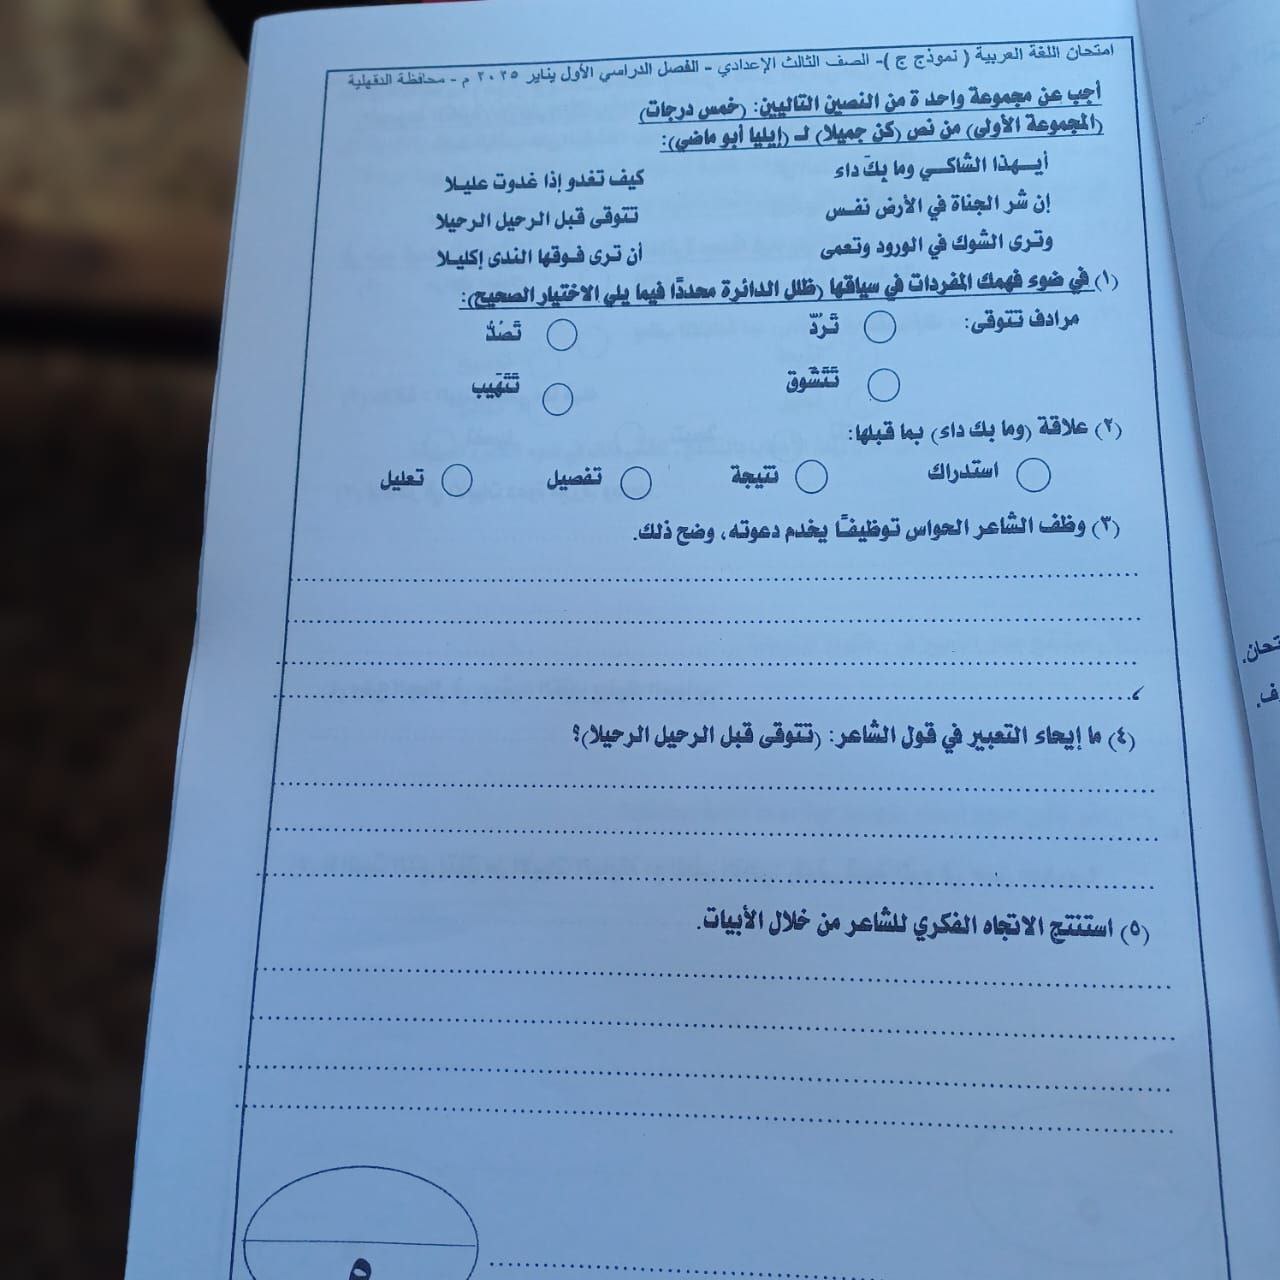 امتحان اللغة العربية ( نموذج ج )- الصف الثالث الإعدادي - الفصل الدراسي الأول يناير ٢٠٢٥ م - محافظة الدقهلية
أجب عن مجموعة واحدة من النصين التاليين: (خمس درجات)
(المجموعة الأولى) من نص (كن جميلا) لـ (إيليا أبو ماضي):
أيـهذا الشاكي وما بكَ داء كيف تغدو إذا غدوت عليلا
إن شر الجناة في الأرض نفس تتوقى قبل الرحيل الرحيلا
وترى الشوك في الورود وتعمى أن ترى فوقها الندى إكليلا
(١) في ضوء فهمك المفردات في سياقها (ظلل الدائرة محددًا فيما يلي الاختيار الصحيح):
مرادف تتوقى: تَردّ تَصُدُّ
تَتَشَّوق تَتَهَيب
(٢) علاقة (وما بك داء) بما قبلها:
استدراك نتيجة تفصيل تعليل
(٣) وظف الشاعر الحواس توظيفًا يخدم دعوته، وضح ذلك.
(٤) ما إيحاء التعبير في قول الشاعر: (تتوقى قبل الرحيل الرحيلا)؟
(٥) استنتج الاتجاه الفكري للشاعر من خلال الأبيات.
٥
تحان.
ف.